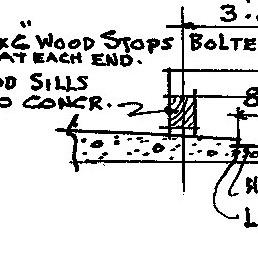 3
x6" WOOD STOPS BOLTE
AT EACH END.
OD SILLS
O CONCR.
8
L